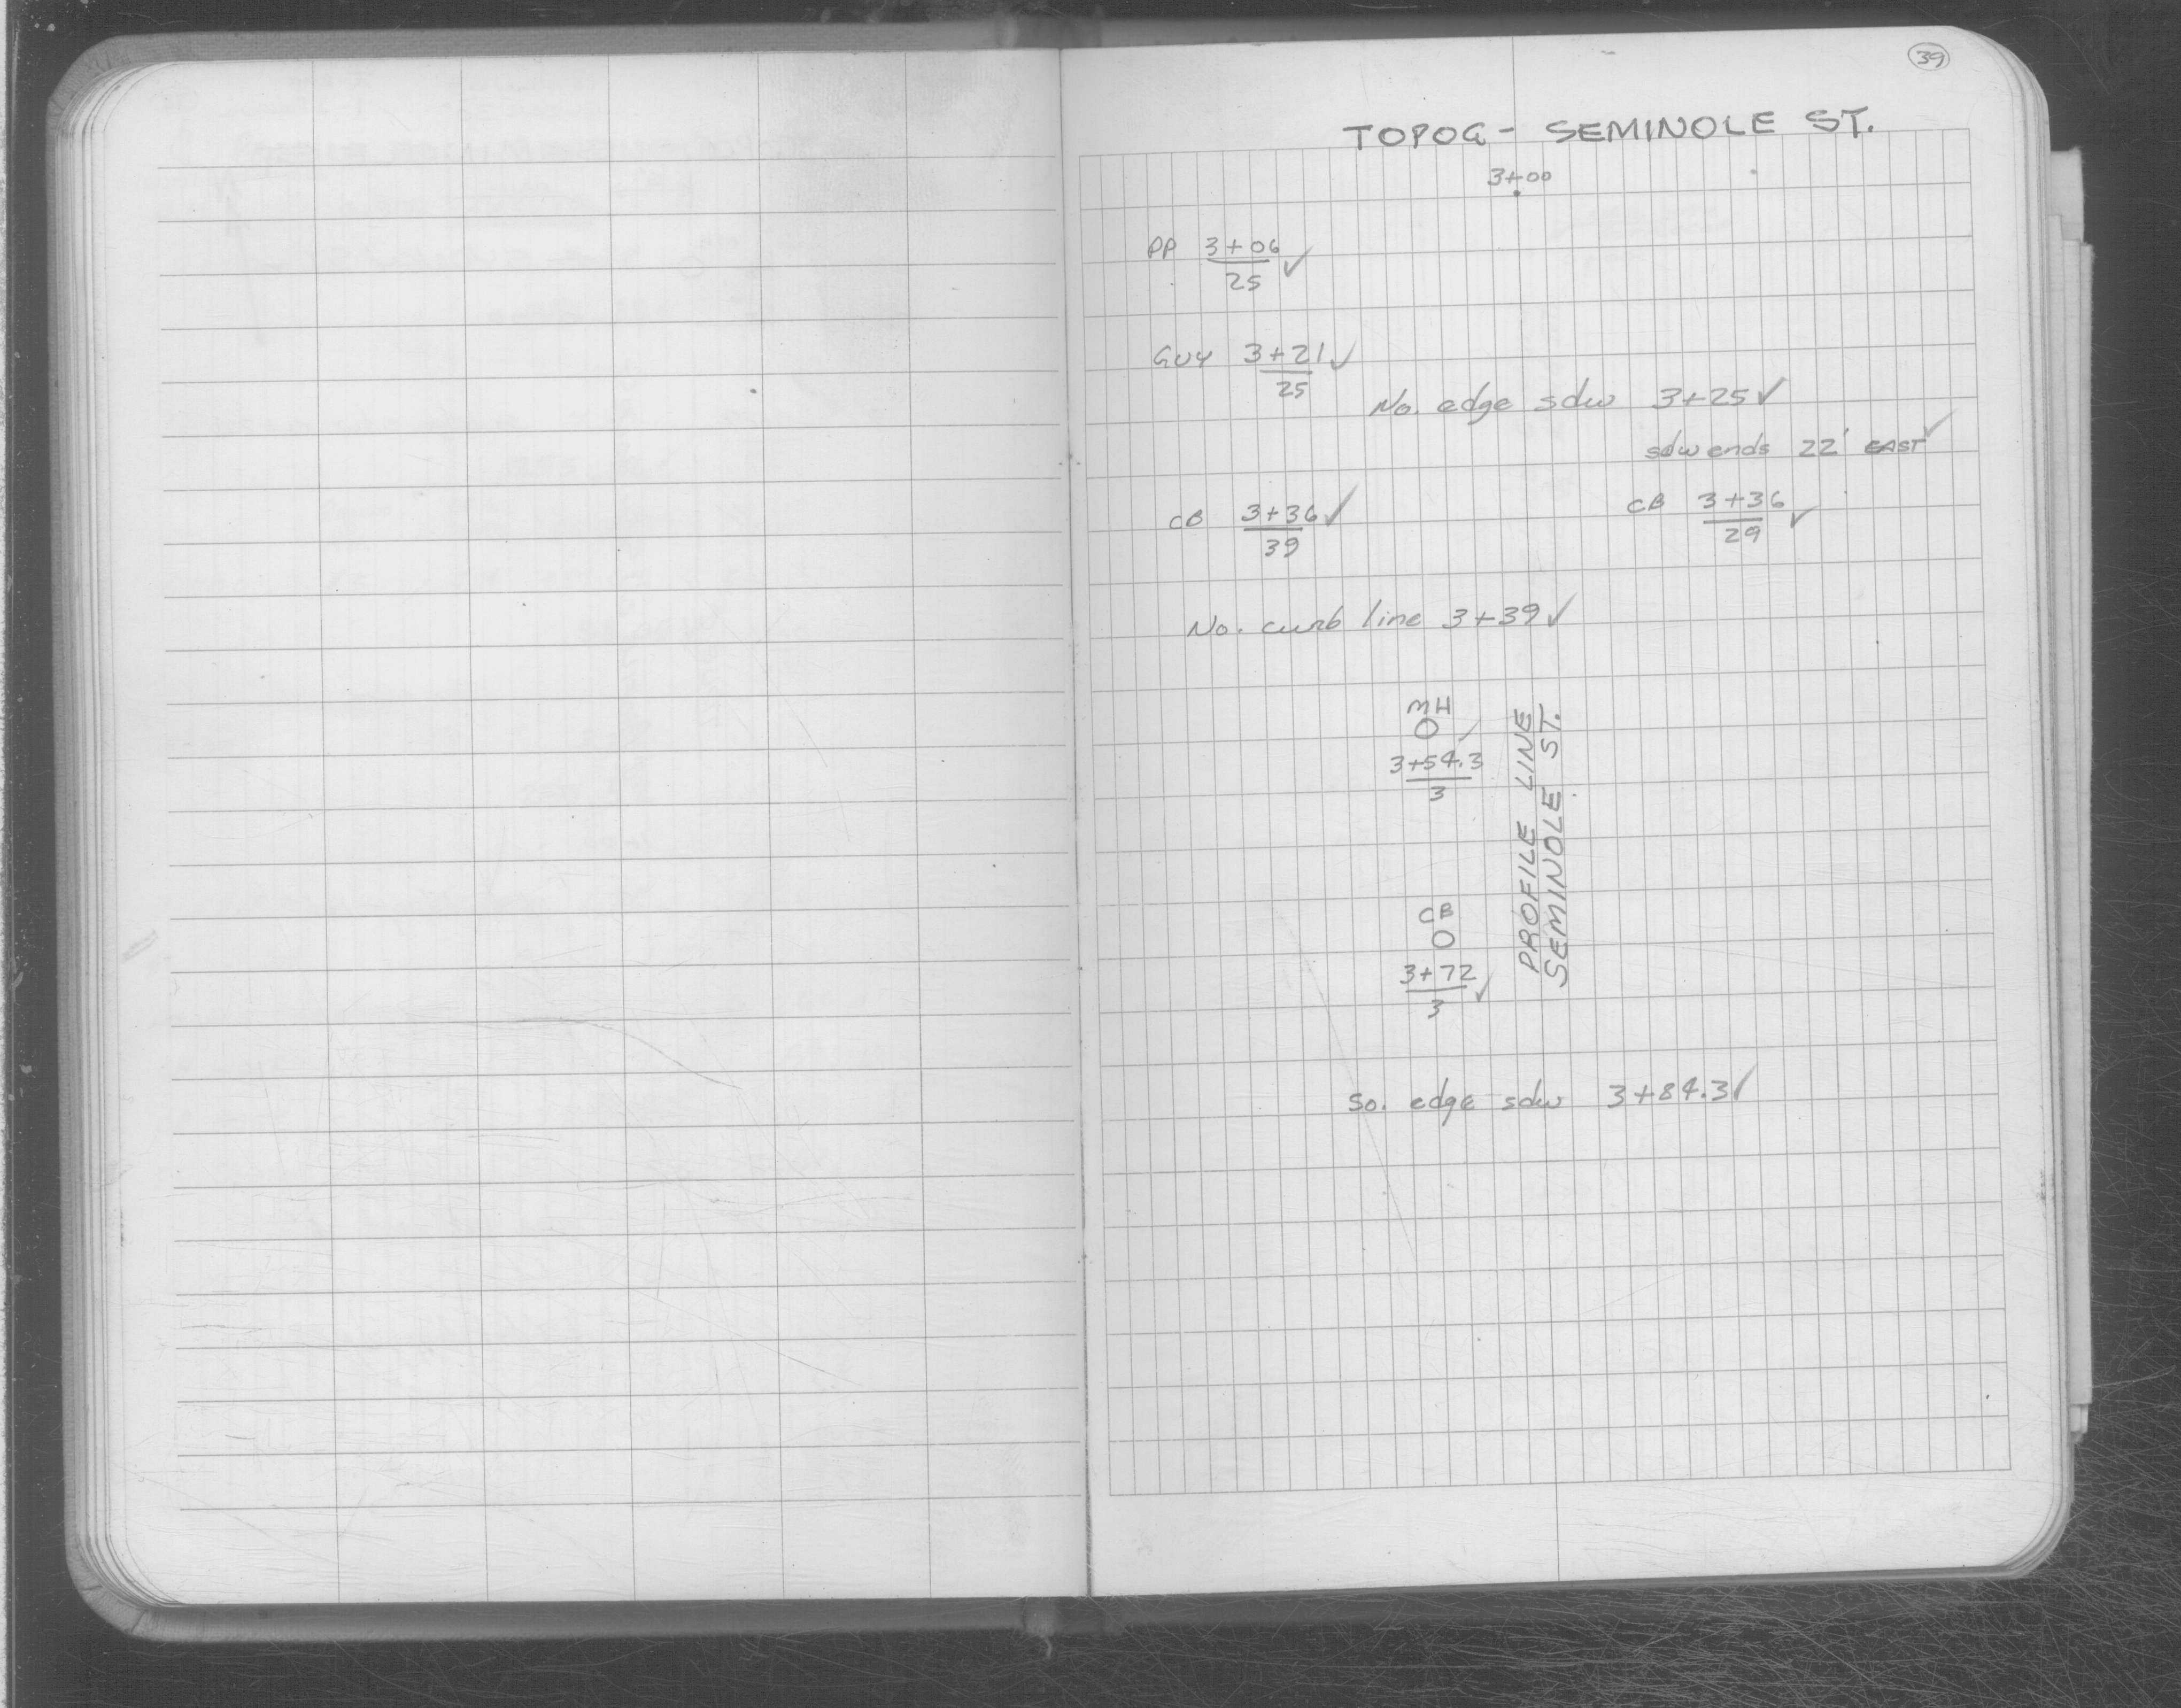 39
TOPOG - SEMINOLE ST.
3+00
PP 3+06 ✓
25
GUY 3+21 ✓
25
No. edge sdw 3+25 ✓
sdw ends 22' EAST ✓
CB 3+36 ✓
39
CB 3+36 ✓
29
No. curb line 3+39 ✓
MH
3+54.3 ✓
3
PROFILE LINE
SEMINOLE ST.
CB
3+72 ✓
3
So. edge sdw 3+84.3 ✓